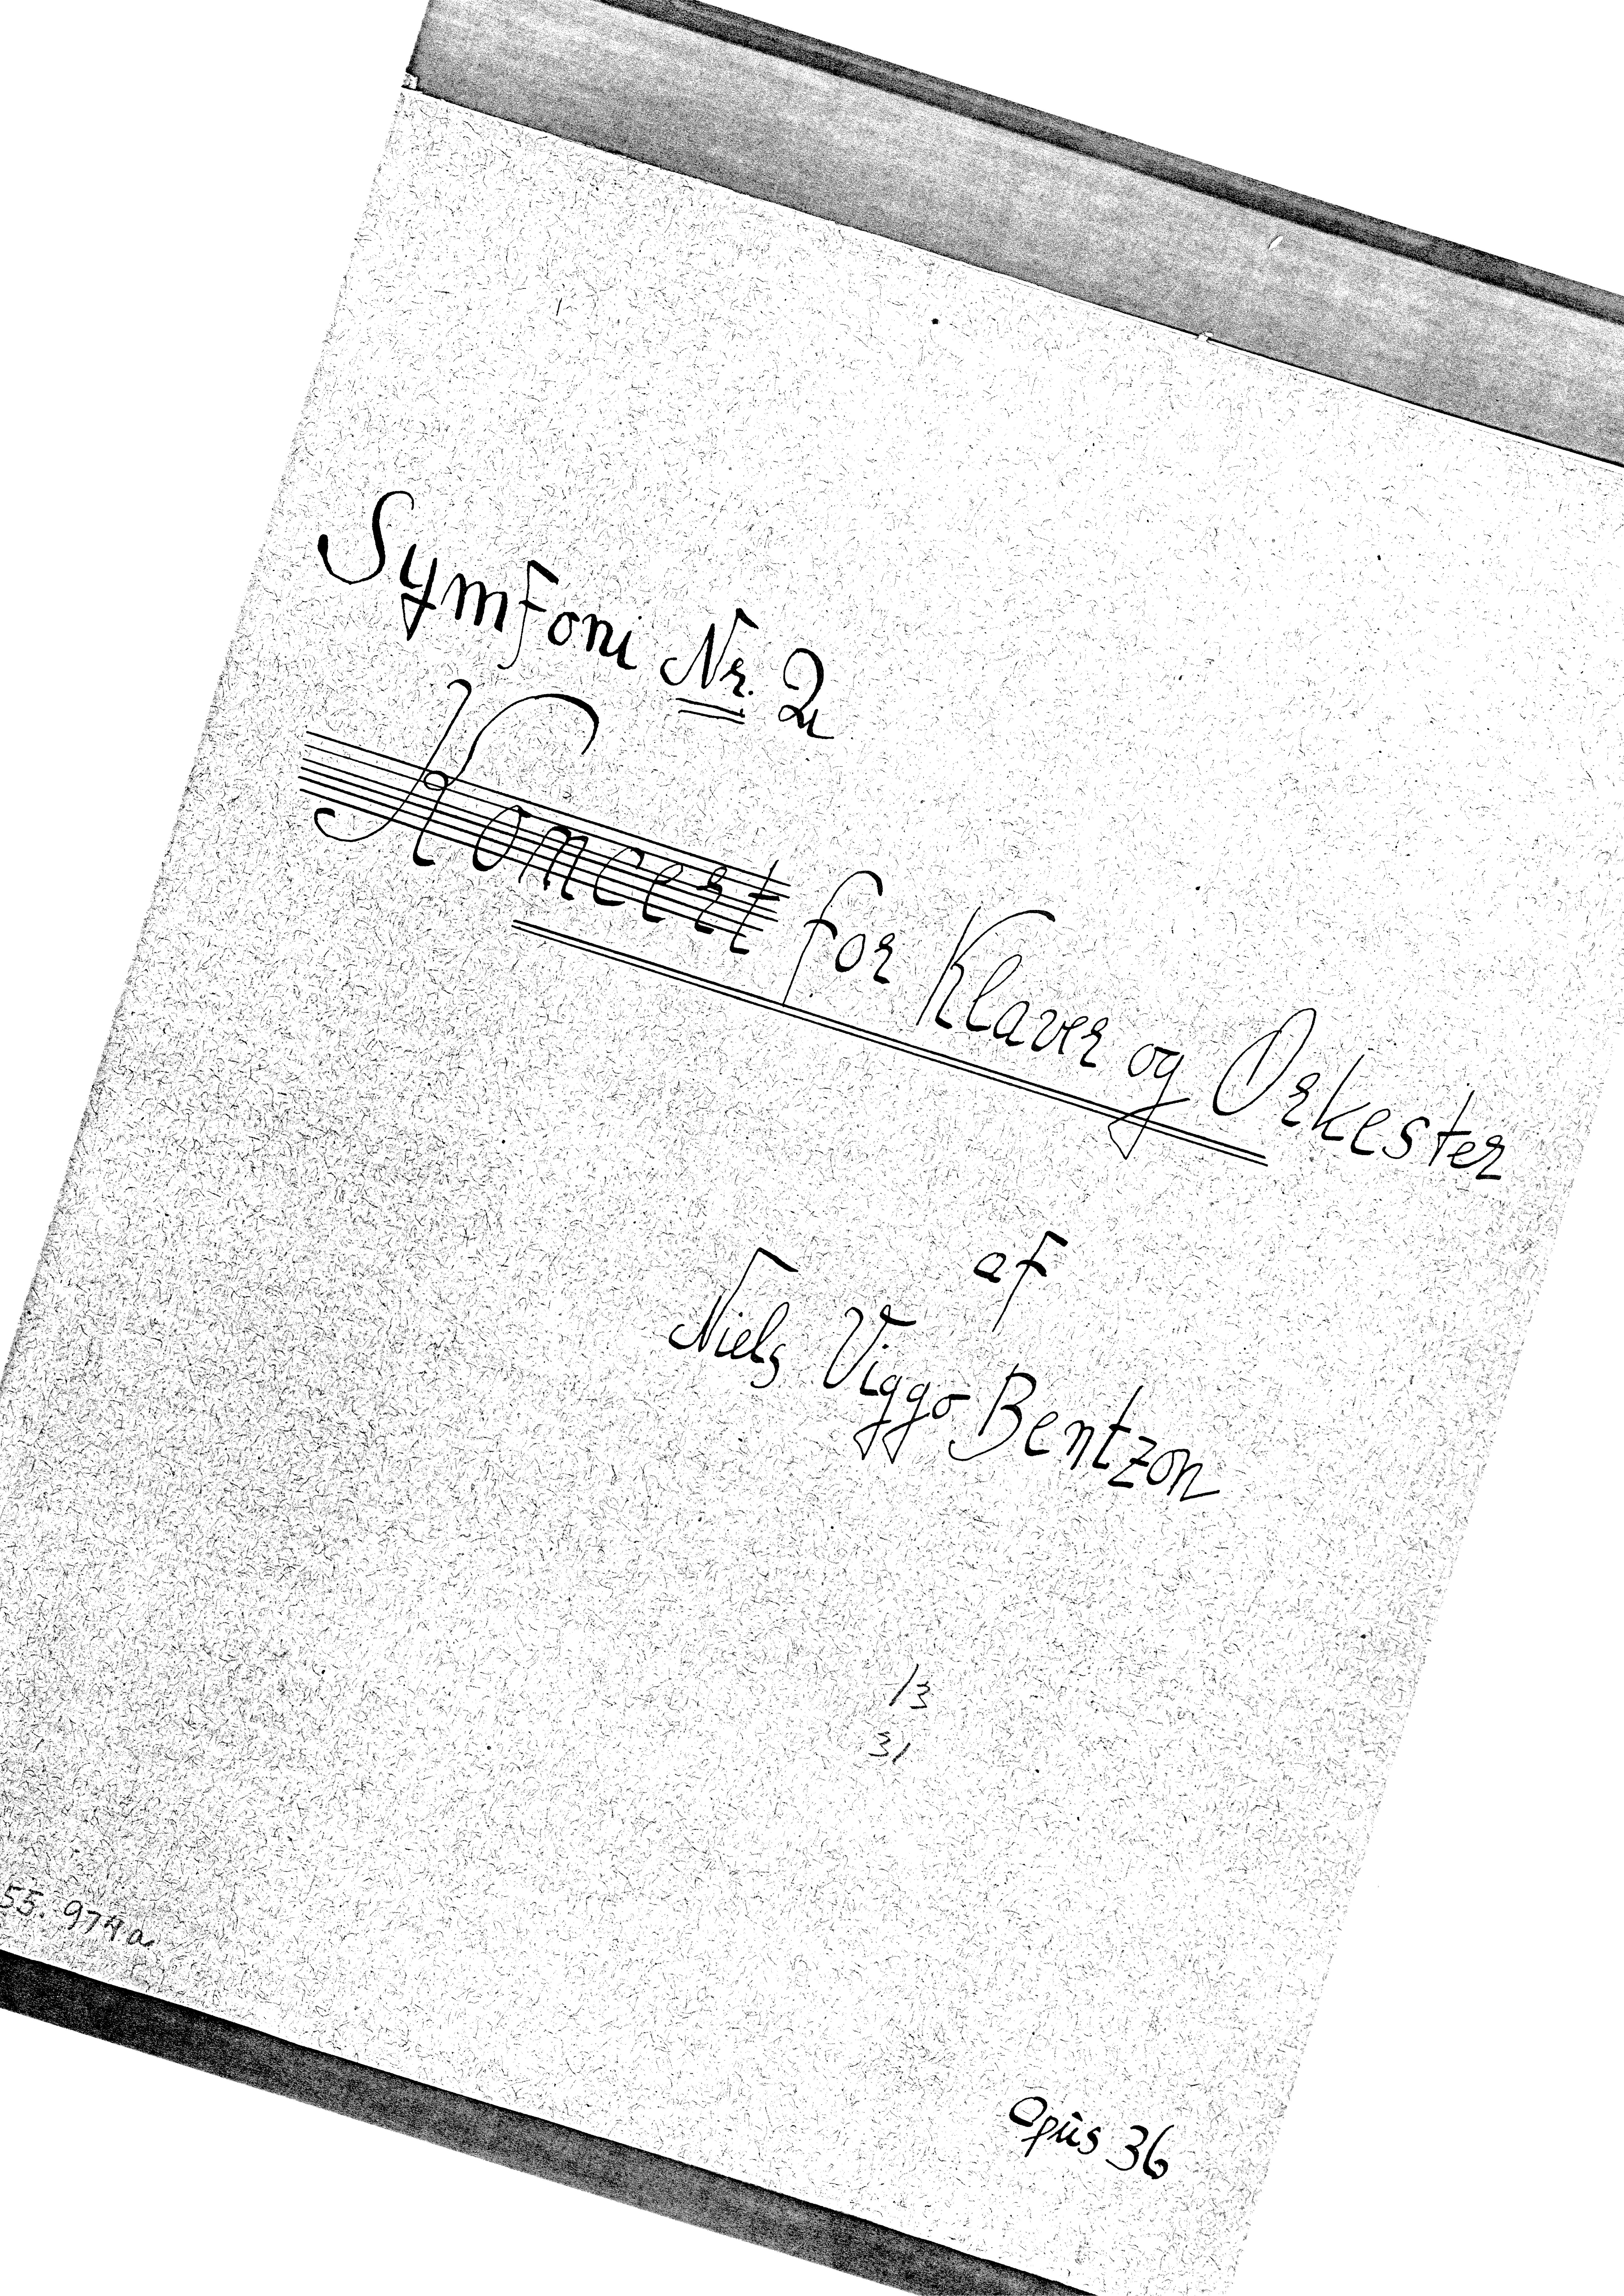 Symfoni Nr. 2
Koncert for Klaver og Orkester
af
Niels Viggo Bentzon
13
31
55. 974a
Opus 36